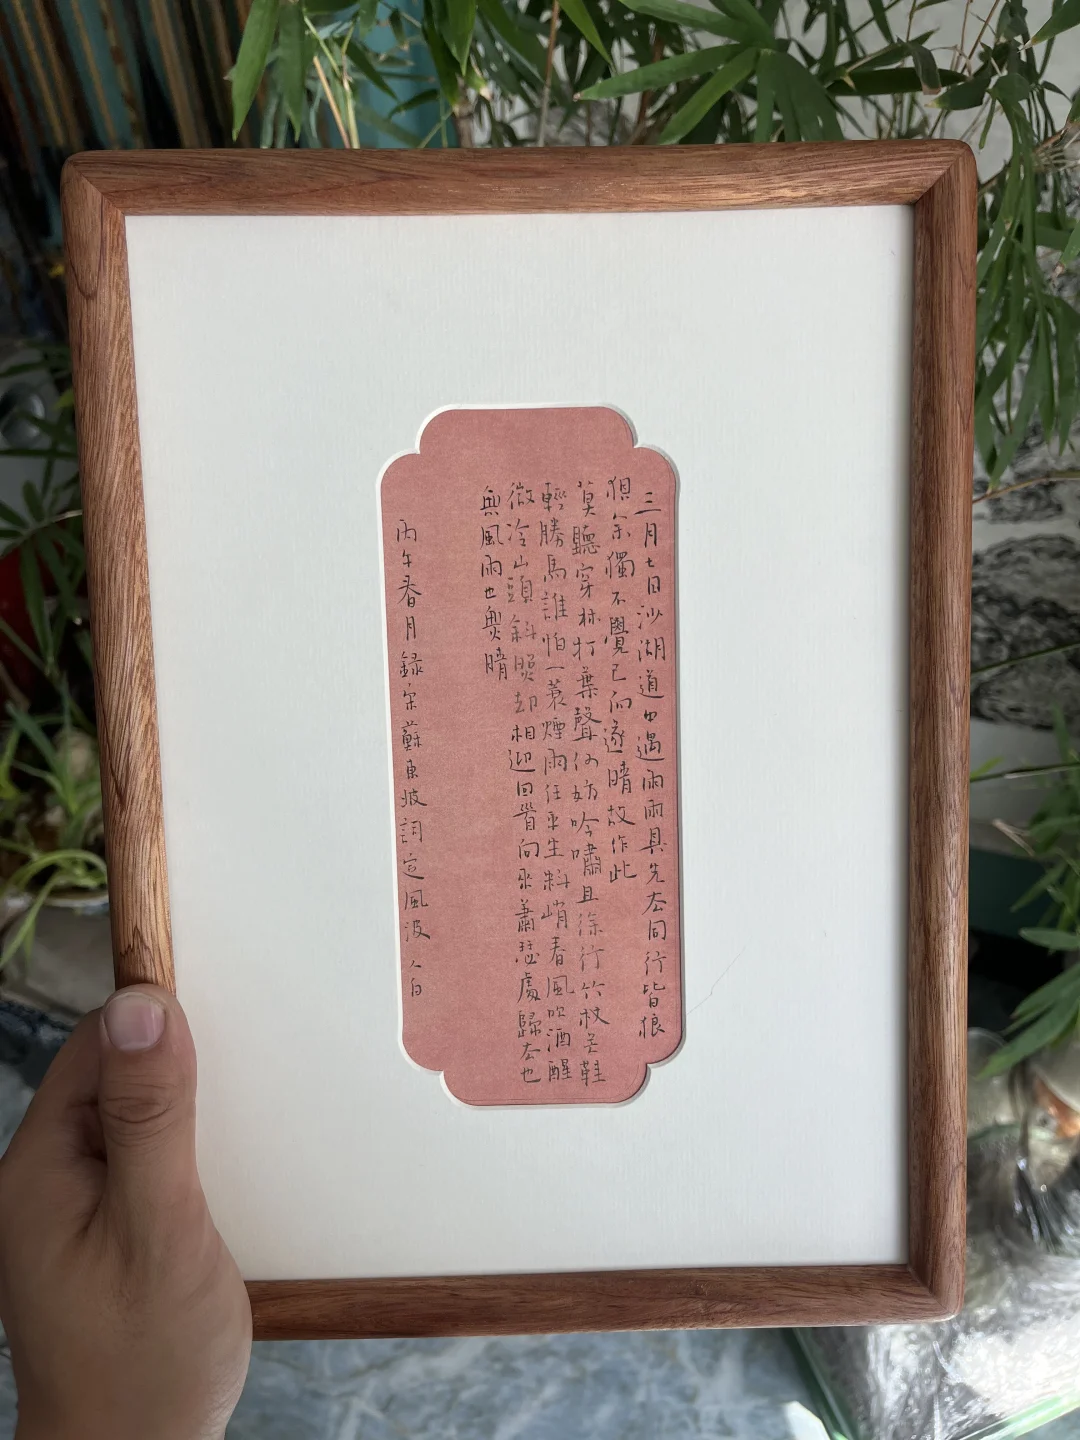 三月七日沙湖道中遇雨雨具先去同行皆狼
狽余獨不覺已而遂晴故作此
莫聽穿林打葉聲何妨吟嘯且徐行竹杖芒鞋
輕勝馬誰怕一蓑煙雨任平生料峭春風吹酒醒
微冷山頭斜照却相迎回首向來蕭瑟處歸去也
無風雨也無晴
丙午春月録宋蘇東坡詞定風波 白